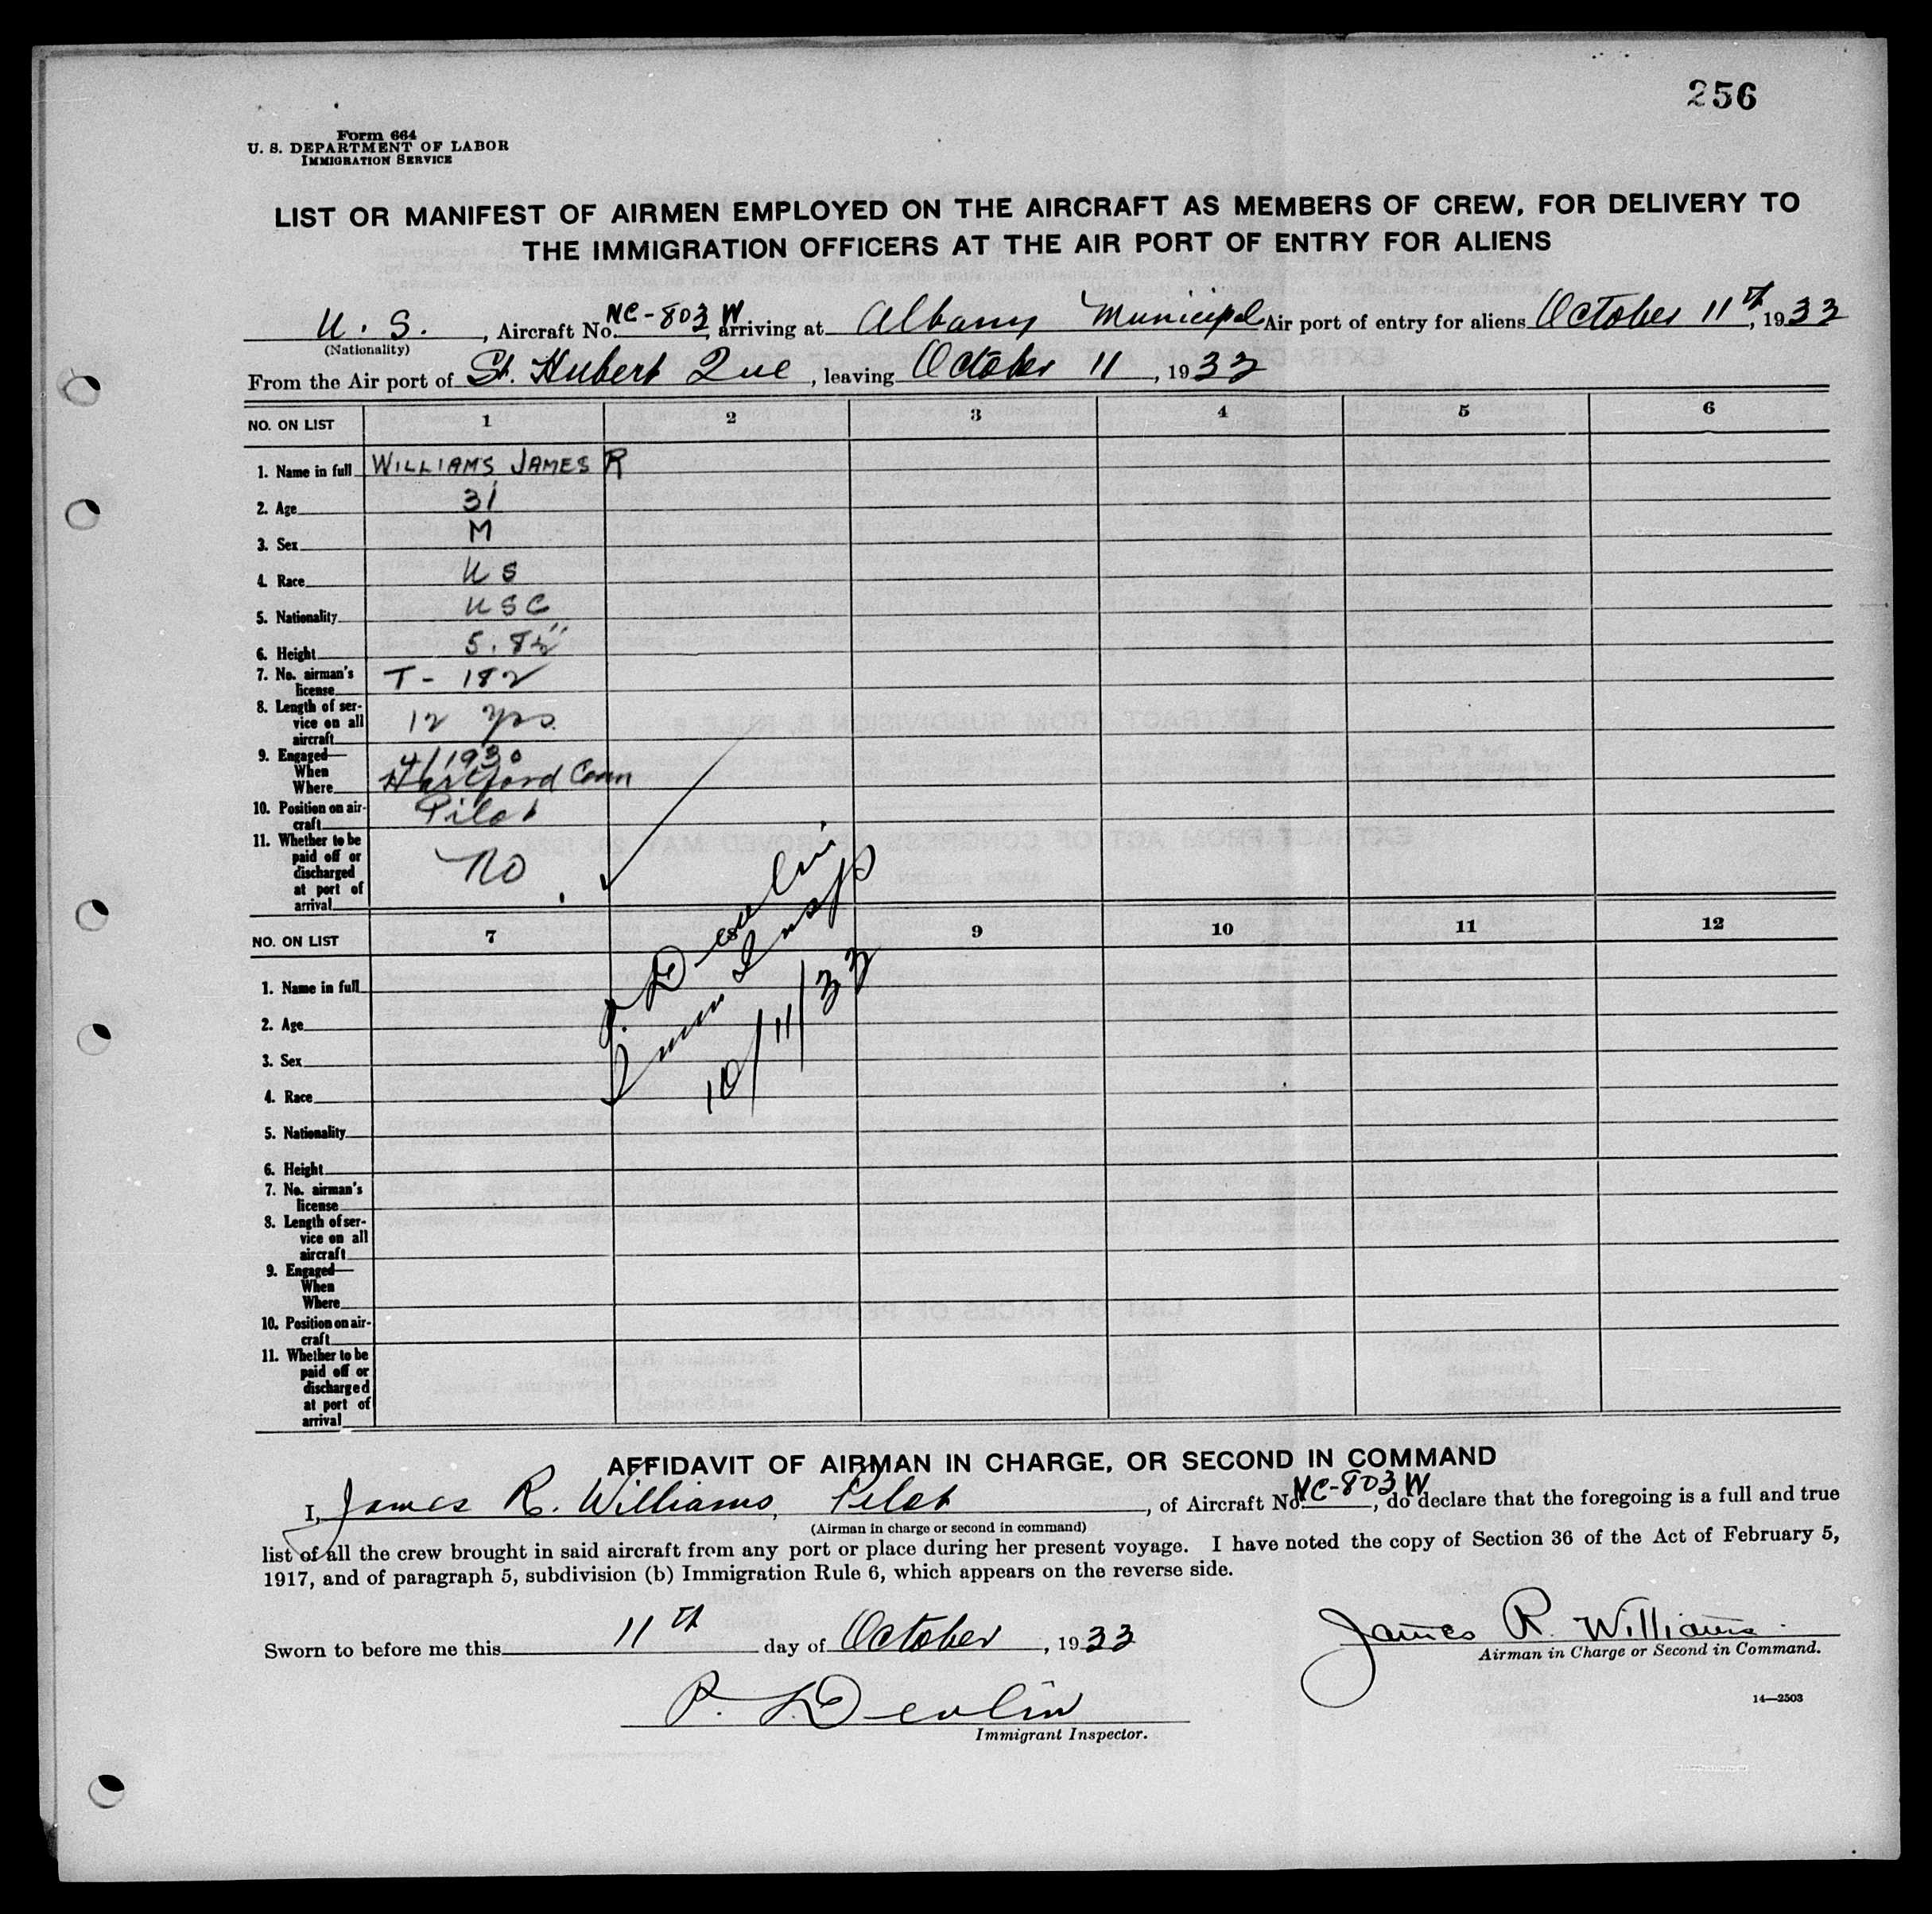 256
Form 664
U. S. DEPARTMENT OF LABOR
IMMIGRATION SERVICE
LIST OR MANIFEST OF AIRMEN EMPLOYED ON THE AIRCRAFT AS MEMBERS OF CREW, FOR DELIVERY TO
THE IMMIGRATION OFFICERS AT THE AIR PORT OF ENTRY FOR ALIENS
U. S., Aircraft No. NC-803W arriving at Albany Municipal Air port of entry for aliens October 11th, 1933
(Nationality)
From the Air port of St. Hubert Que, leaving October 11, 1933
NO. ON LIST 1 2 3 4 5 6
1. Name in full WILLIAMS JAMES R
2. Age 31
3. Sex M
4. Race U S
5. Nationality U S C
6. Height 5. 8½"
7. No. airman's
license T - 182
8. Length of ser-
vice on all
aircraft 12 yrs.
9. Engaged—
When 4/1930
Where Hartford Conn
10. Position on air-
craft Pilot
11. Whether to be
paid off or
discharged
at port of
arrival No
NO. ON LIST 7 8 9 10 11 12
P. Devlin
Imm Insp
10/11/33
1. Name in full
2. Age
3. Sex
4. Race
5. Nationality
6. Height
7. No. airman's
license
8. Length of ser-
vice on all
aircraft
9. Engaged—
When
Where
10. Position on air-
craft
11. Whether to be
paid off or
discharged
at port of
arrival
AFFIDAVIT OF AIRMAN IN CHARGE, OR SECOND IN COMMAND
I, James R. Williams, Pilot, of Aircraft No. NC-803W, do declare that the foregoing is a full and true
(Airman in charge or second in command)
list of all the crew brought in said aircraft from any port or place during her present voyage. I have noted the copy of Section 36 of the Act of February 5,
1917, and of paragraph 5, subdivision (b) Immigration Rule 6, which appears on the reverse side.
Sworn to before me this 11th day of October, 1933
James R. Williams.
Airman in Charge or Second in Command.
P. Devlin
Immigrant Inspector.
14—2503